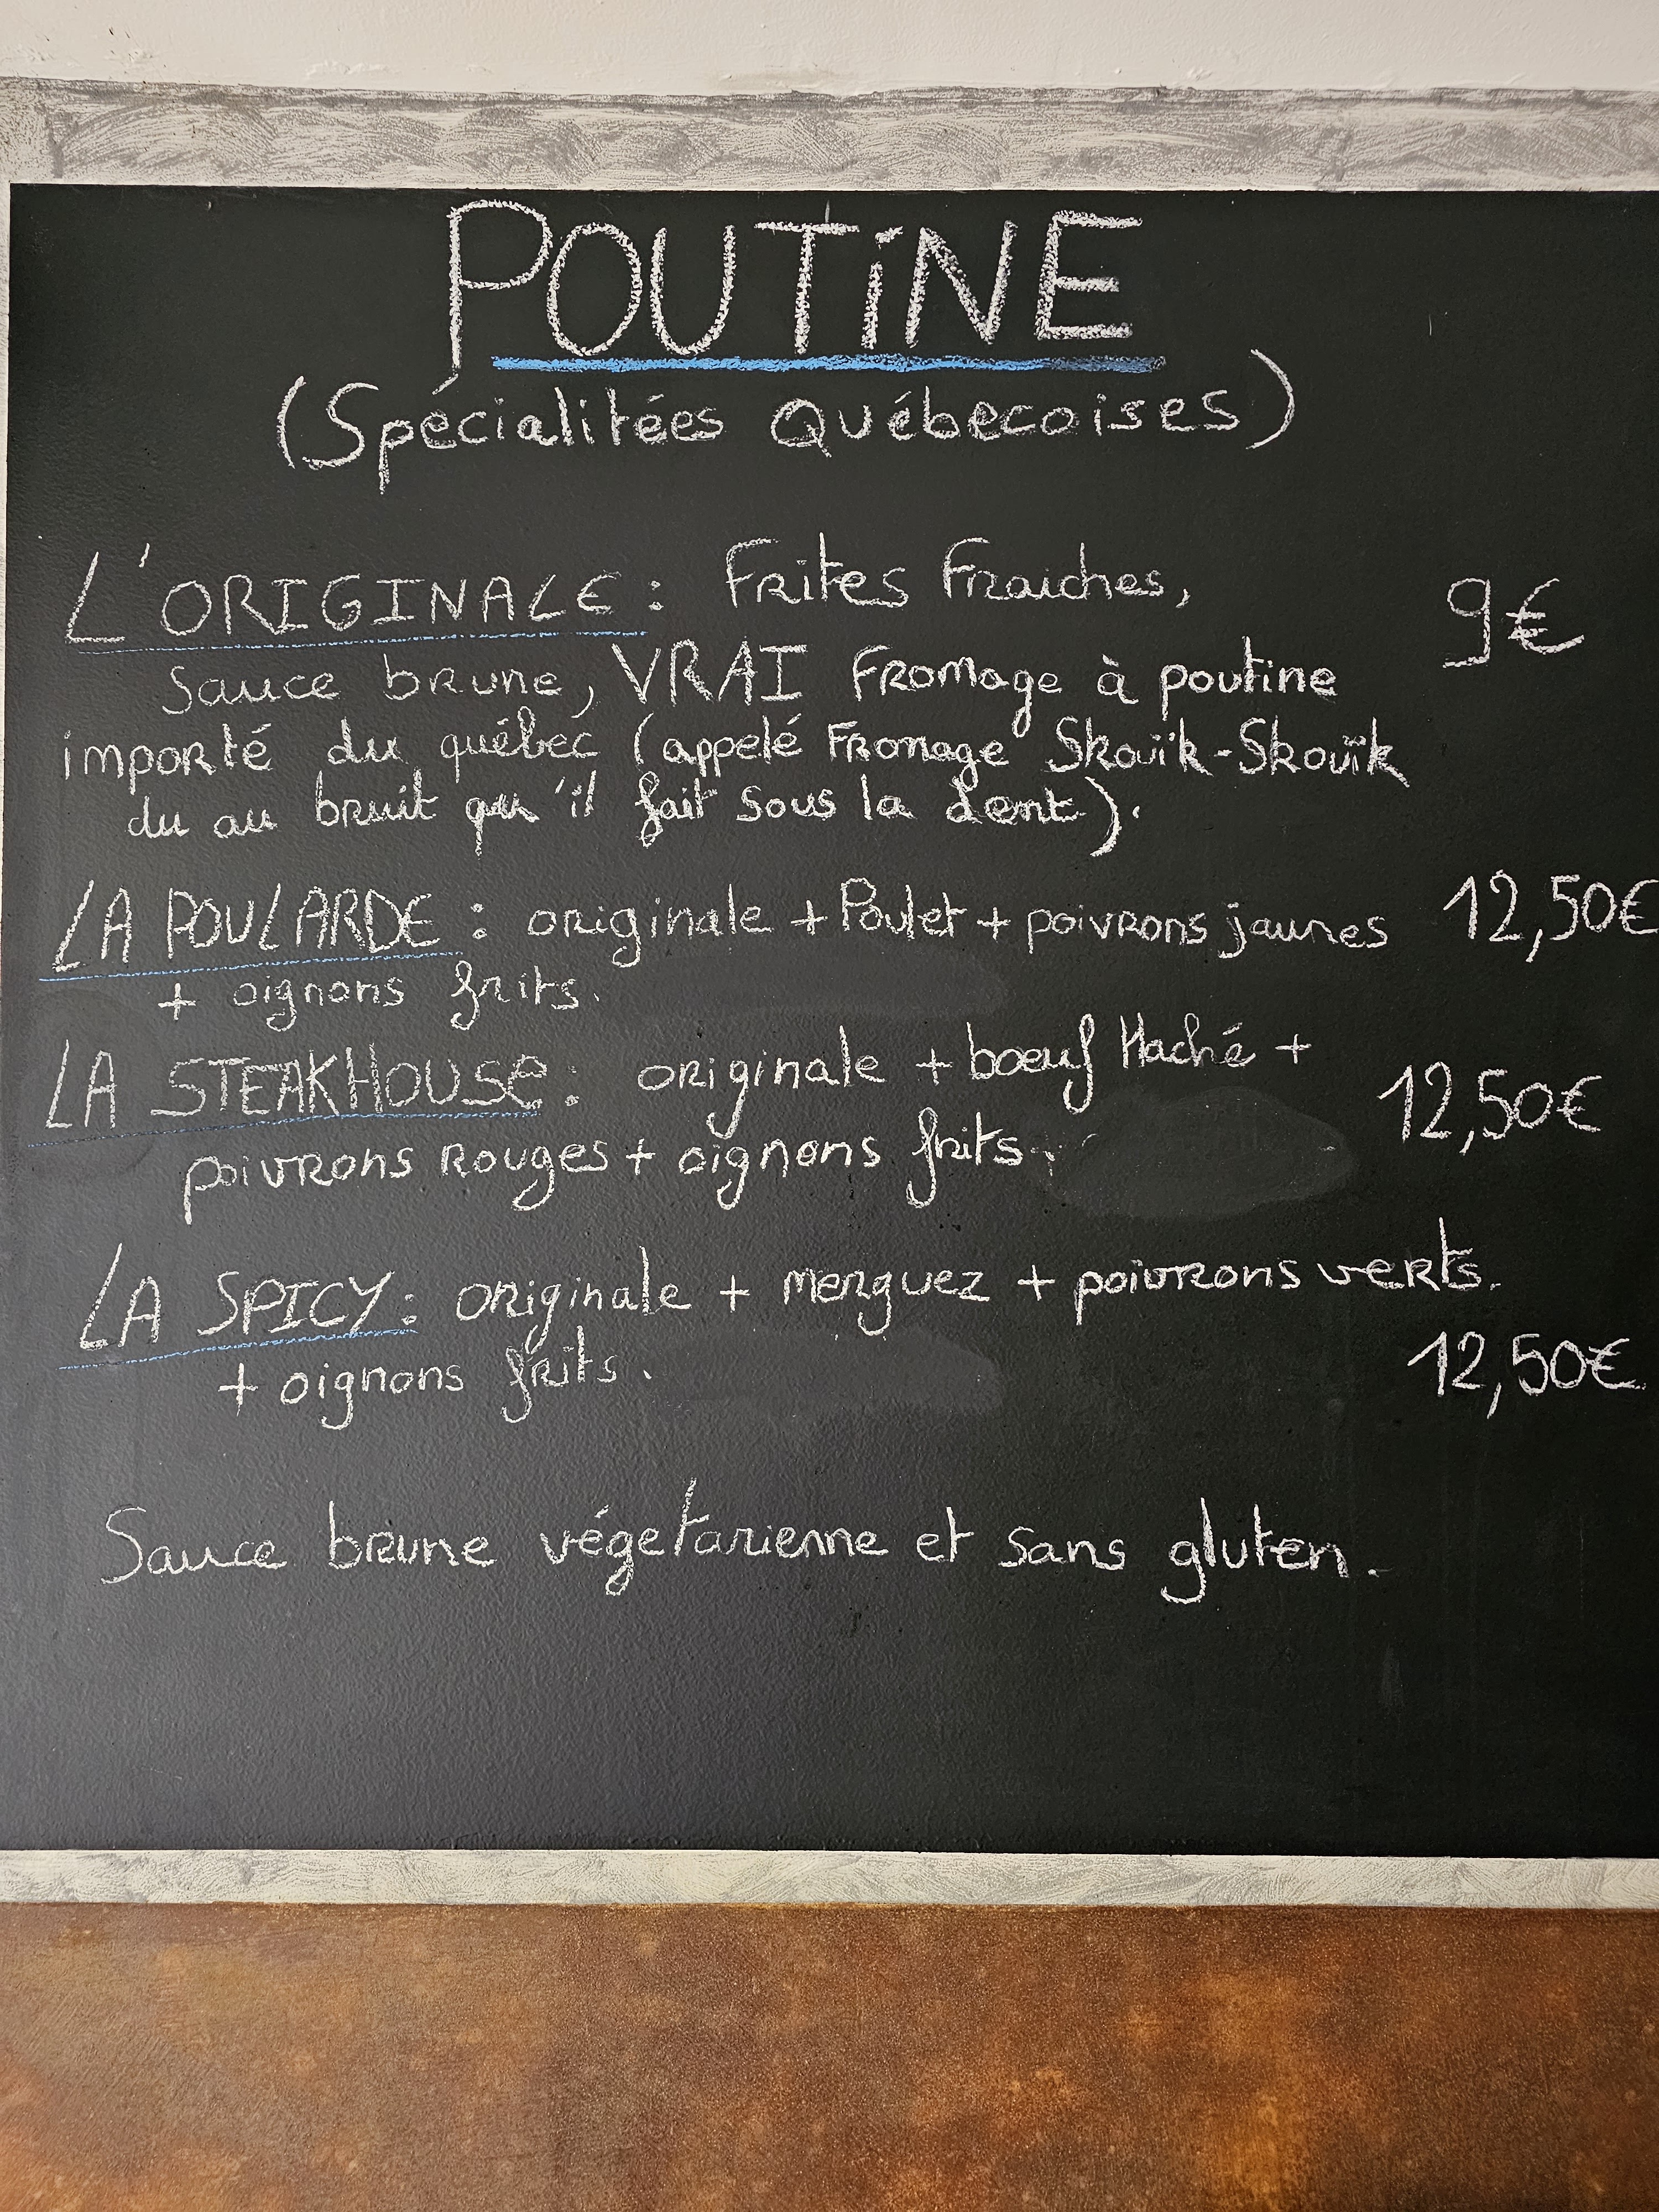 POUTiNE
(Spécialitées Québecoises)
L'ORIGINALE : Frites Fraiches, 9€
Sauce brune, VRAI Fromage à poutine
importé du québec (appelé Fromage Skouïk-Skouïk
du au bruit qu'il fait sous la dent).
LA POULARDE : originale + Poulet + poivrons jaunes 12,50€
+ oignons frits.
LA STEAKHOUSE : originale + bœuf Haché + 12,50€
poivrons rouges + oignons frits.
LA SPICY : originale + merguez + poivrons verts.
+ oignons frits. 12,50€
Sauce brune végetarienne et sans gluten.